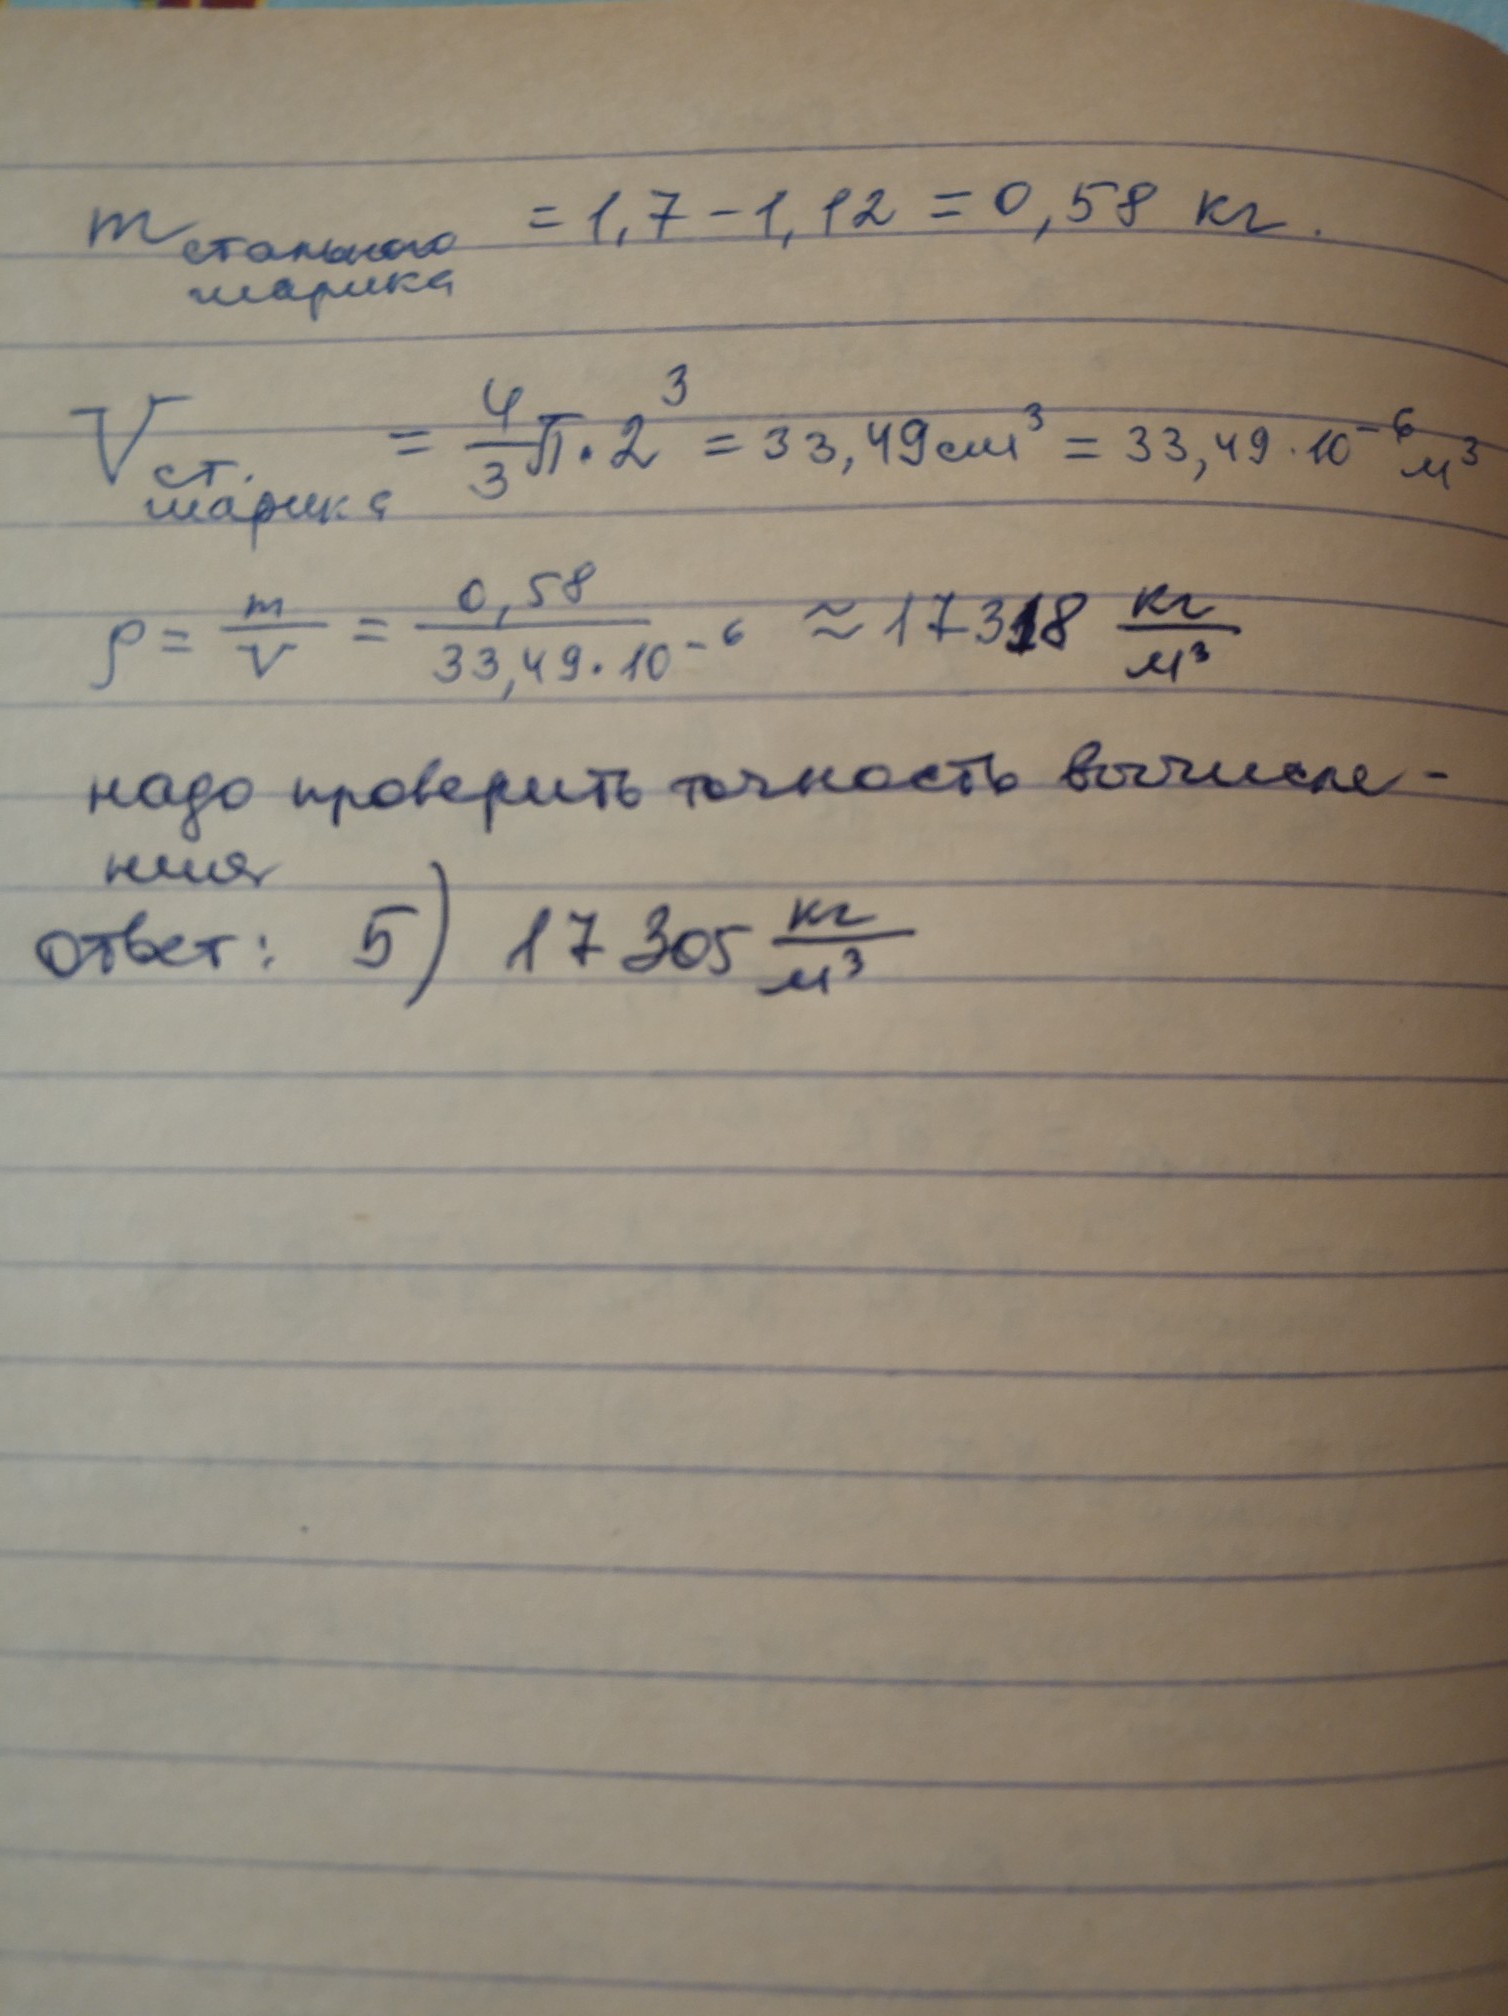 m стального шарика = 1,7 - 1,12 = 0,58 кг.
V ст. шарика = 4/3 π · 2³ = 33,49 см³ = 33,49 · 10⁻⁶ м³
ρ = m/V = 0,58/33,49 · 10⁻⁶ ≈ 17318 кг/м³
надо проверить точность вычисле-
ния
ответ: 5) 17305 кг/м³